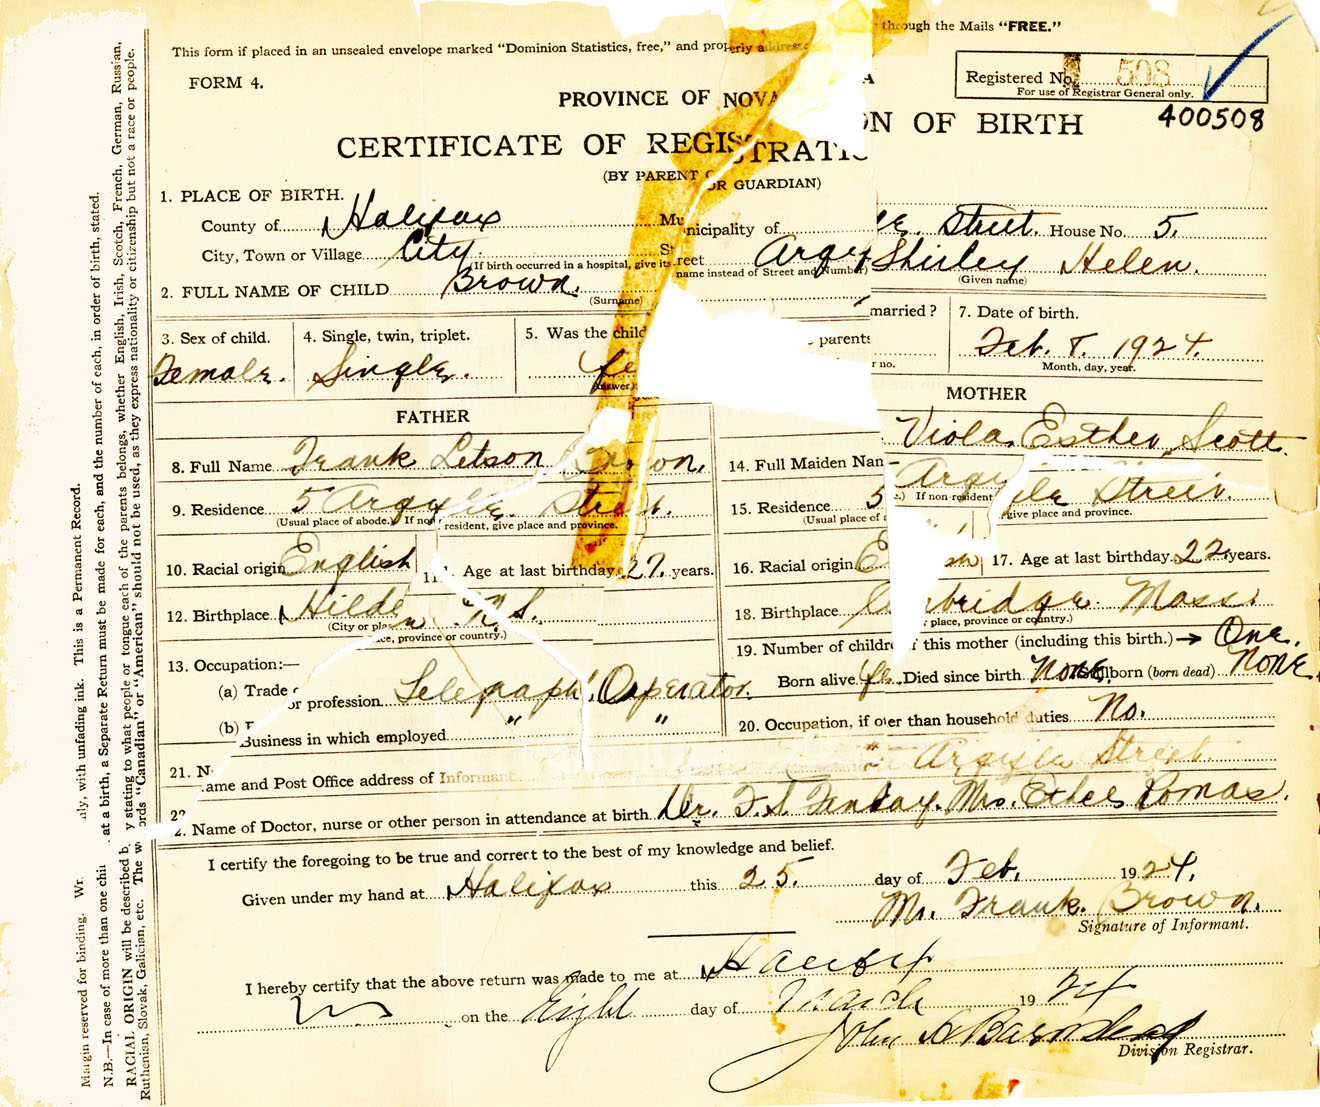 through the Mails "FREE."
This form if placed in an unsealed envelope marked "Dominion Statistics, free," and properly addresse
FORM 4.
Registered No. 508
For use of Registrar General only.
400508
PROVINCE OF NOVA A
CERTIFICATE OF REGISTRATION OF BIRTH
(BY PARENT OR GUARDIAN)
1. PLACE OF BIRTH.
County of Halifax Municipality of
City, Town or Village City. Street Argyle. Street. House No. 5.
If birth occurred in a hospital, give its name instead of Street and Number)
2. FULL NAME OF CHILD Brown. Shirley Helen.
(Surname) (Given name)
3. Sex of child. 4. Single, twin, triplet. 5. Was the child parents married? 7. Date of birth.
Female. Single. Feb. 8. 1924.
Answer r no. Month, day, year.
FATHER
8. Full Name Frank Letson Brown.
9. Residence 5 Argyle. Street.
(Usual place of abode.) If non resident, give place and province.
10. Racial origin English 11. Age at last birthday 27. years.
12. Birthplace Hilden N.S.
(City or place, province or country.)
13. Occupation:—
(a) Trade or profession Telegraph Operator.
(b) Business in which employed " "
MOTHER
14. Full Maiden Nam Viola Esther Scott.
15. Residence 5 Argyle Street.
(Usual place of a e.) If non-resident give place and province.
16. Racial origin E sh 17. Age at last birthday 22 years.
18. Birthplace Cambridge Mass.
place, province or country.)
19. Number of children of this mother (including this birth.) → One.
Born alive Died since birth None. Stillborn (born dead) None
20. Occupation, if other than household duties No.
21. Name and Post Office address of Informant Argyle Street.
22. Name of Doctor, nurse or other person in attendance at birth Dr. F.S. Mrs. Ethel Romas.
I certify the foregoing to be true and correct to the best of my knowledge and belief.
Given under my hand at Halifax this 25. day of Feb. 1924.
Mr. Frank. Brown.
Signature of Informant.
I hereby certify that the above return was made to me at Halifax
on the Eight day of March 1924
John A Barnstead
Division Registrar.
Margin reserved for binding. Wr nly, with unfading ink. This is a Permanent Record.
N.B.—In case of more than one chil at a birth, a Separate Return must be made for each, and the number of each, in order of birth, stated.
RACIAL ORIGIN will be described b y stating to what people or tongue each of the parents belongs, whether English, Irish, Scotch, French, German, Russian,
Ruthenian, Slovak, Galician, etc. The words "Canadian" or "American" should not be used, as they express nationality or citizenship but not a race or people.